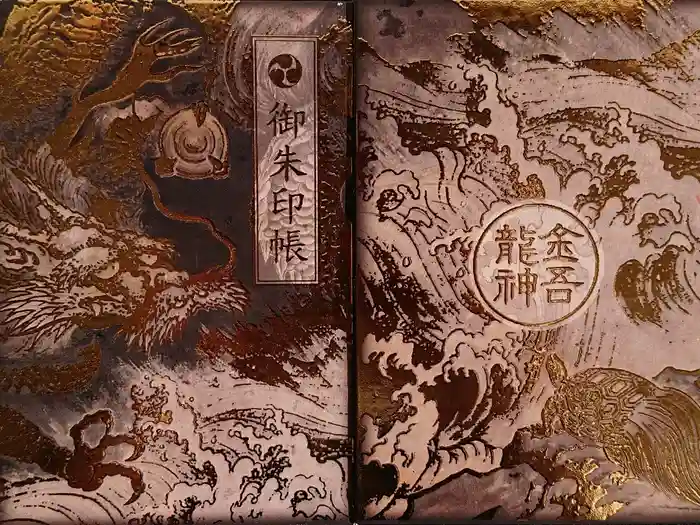 御朱印帳
金吾
龍神